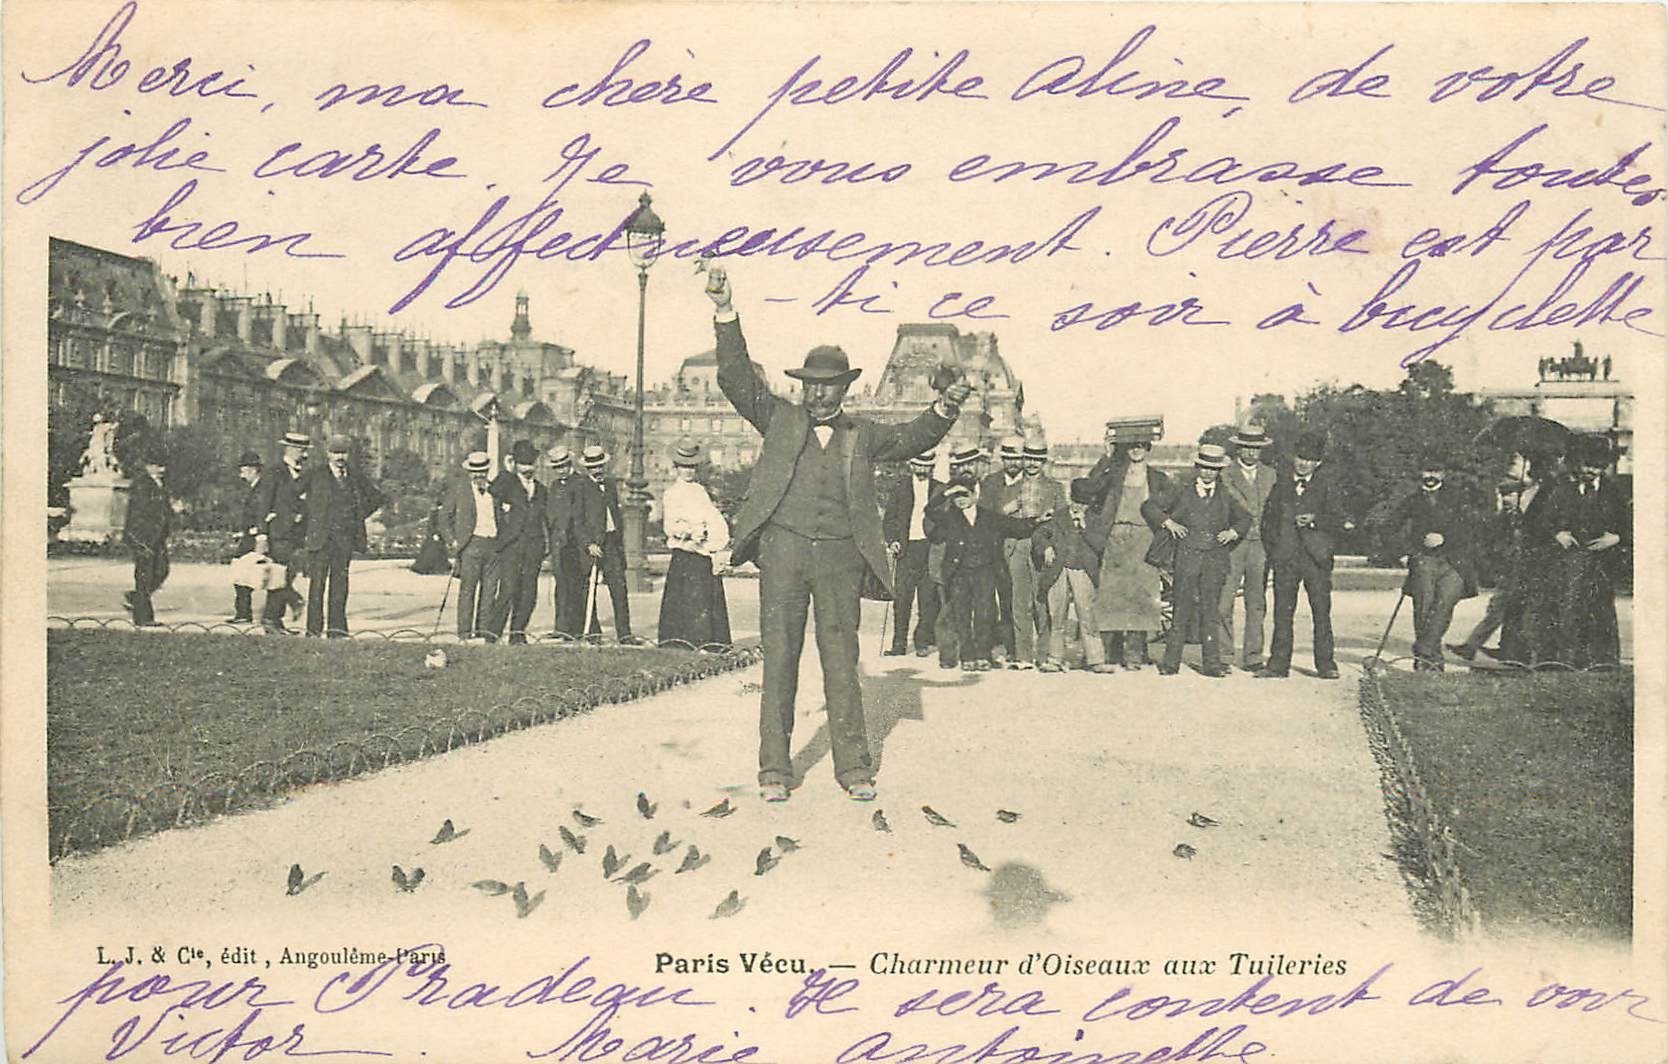 Merci, ma chère petite Aline, de votre
jolie carte. Je vous embrasse toutes
bien affectueusement. Pierre est par
-ti ce soir à bicyclette
L. J. & Cie, édit, Angoulême-Paris
Paris Vécu. — Charmeur d'Oiseaux aux Tuileries
pour Pradeau. Il sera content de voir
Victor. Marie Antoinette